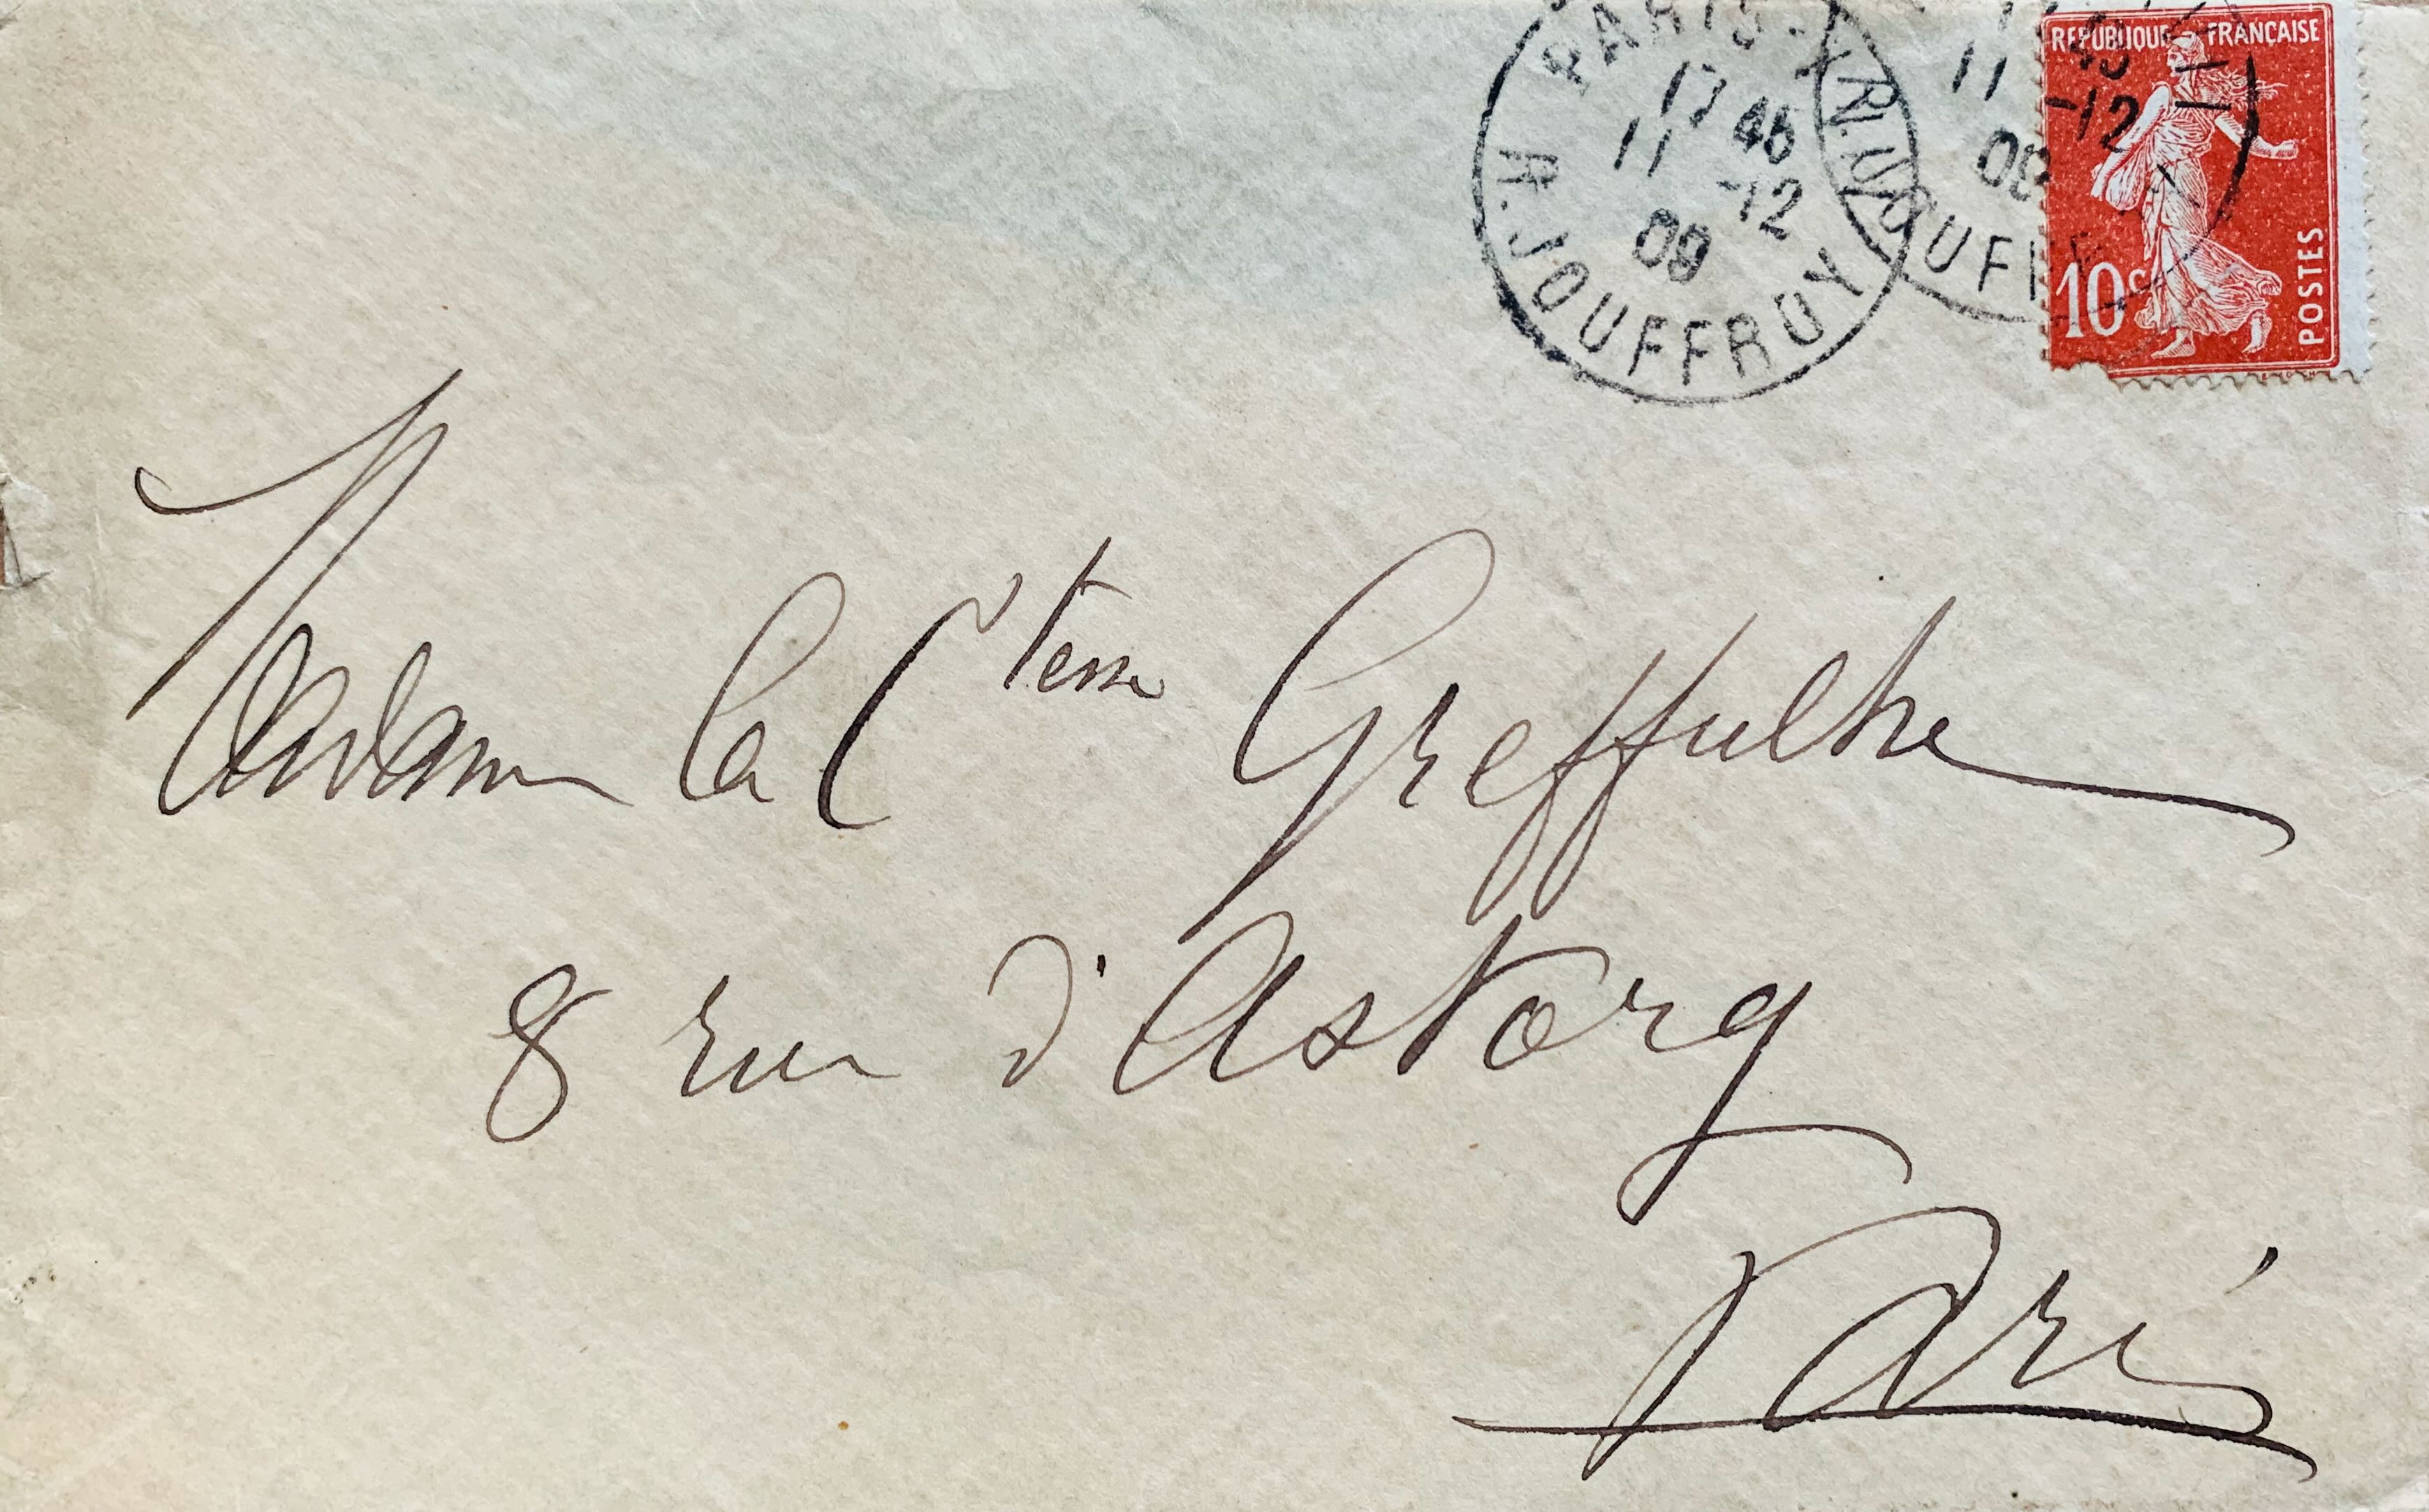 PARIS
17 45
11 -12
09
R. JOUFFROY
11 -12
09
REPUBLIQUE FRANÇAISE
10c
POSTES
Madame la Ctesse Greffulhe
8 rue d'Astorg
Paris